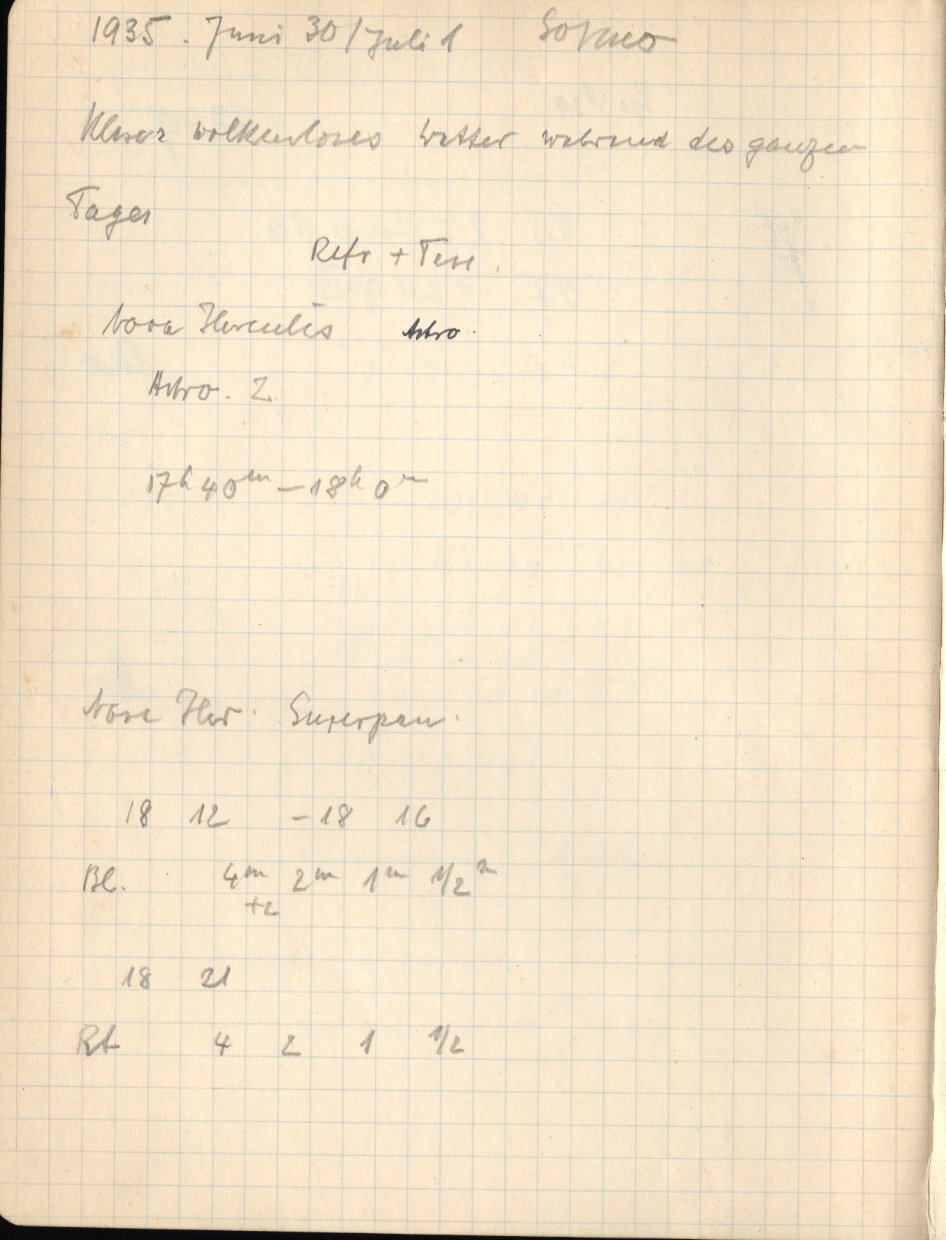 1935. Juni 30/Juli 1
Klares wolkenloses Wetter während des ganzen
Tages
Refr + Tess.
Nova Herculis Astro.
Astro. Z
17h 40m – 18h 0m
Nova Her. Superpan.
18 12 – 18 16
Bl. 4m 2m 1m 1/2m
+2
18 21
Rt 4 2 1 1/2